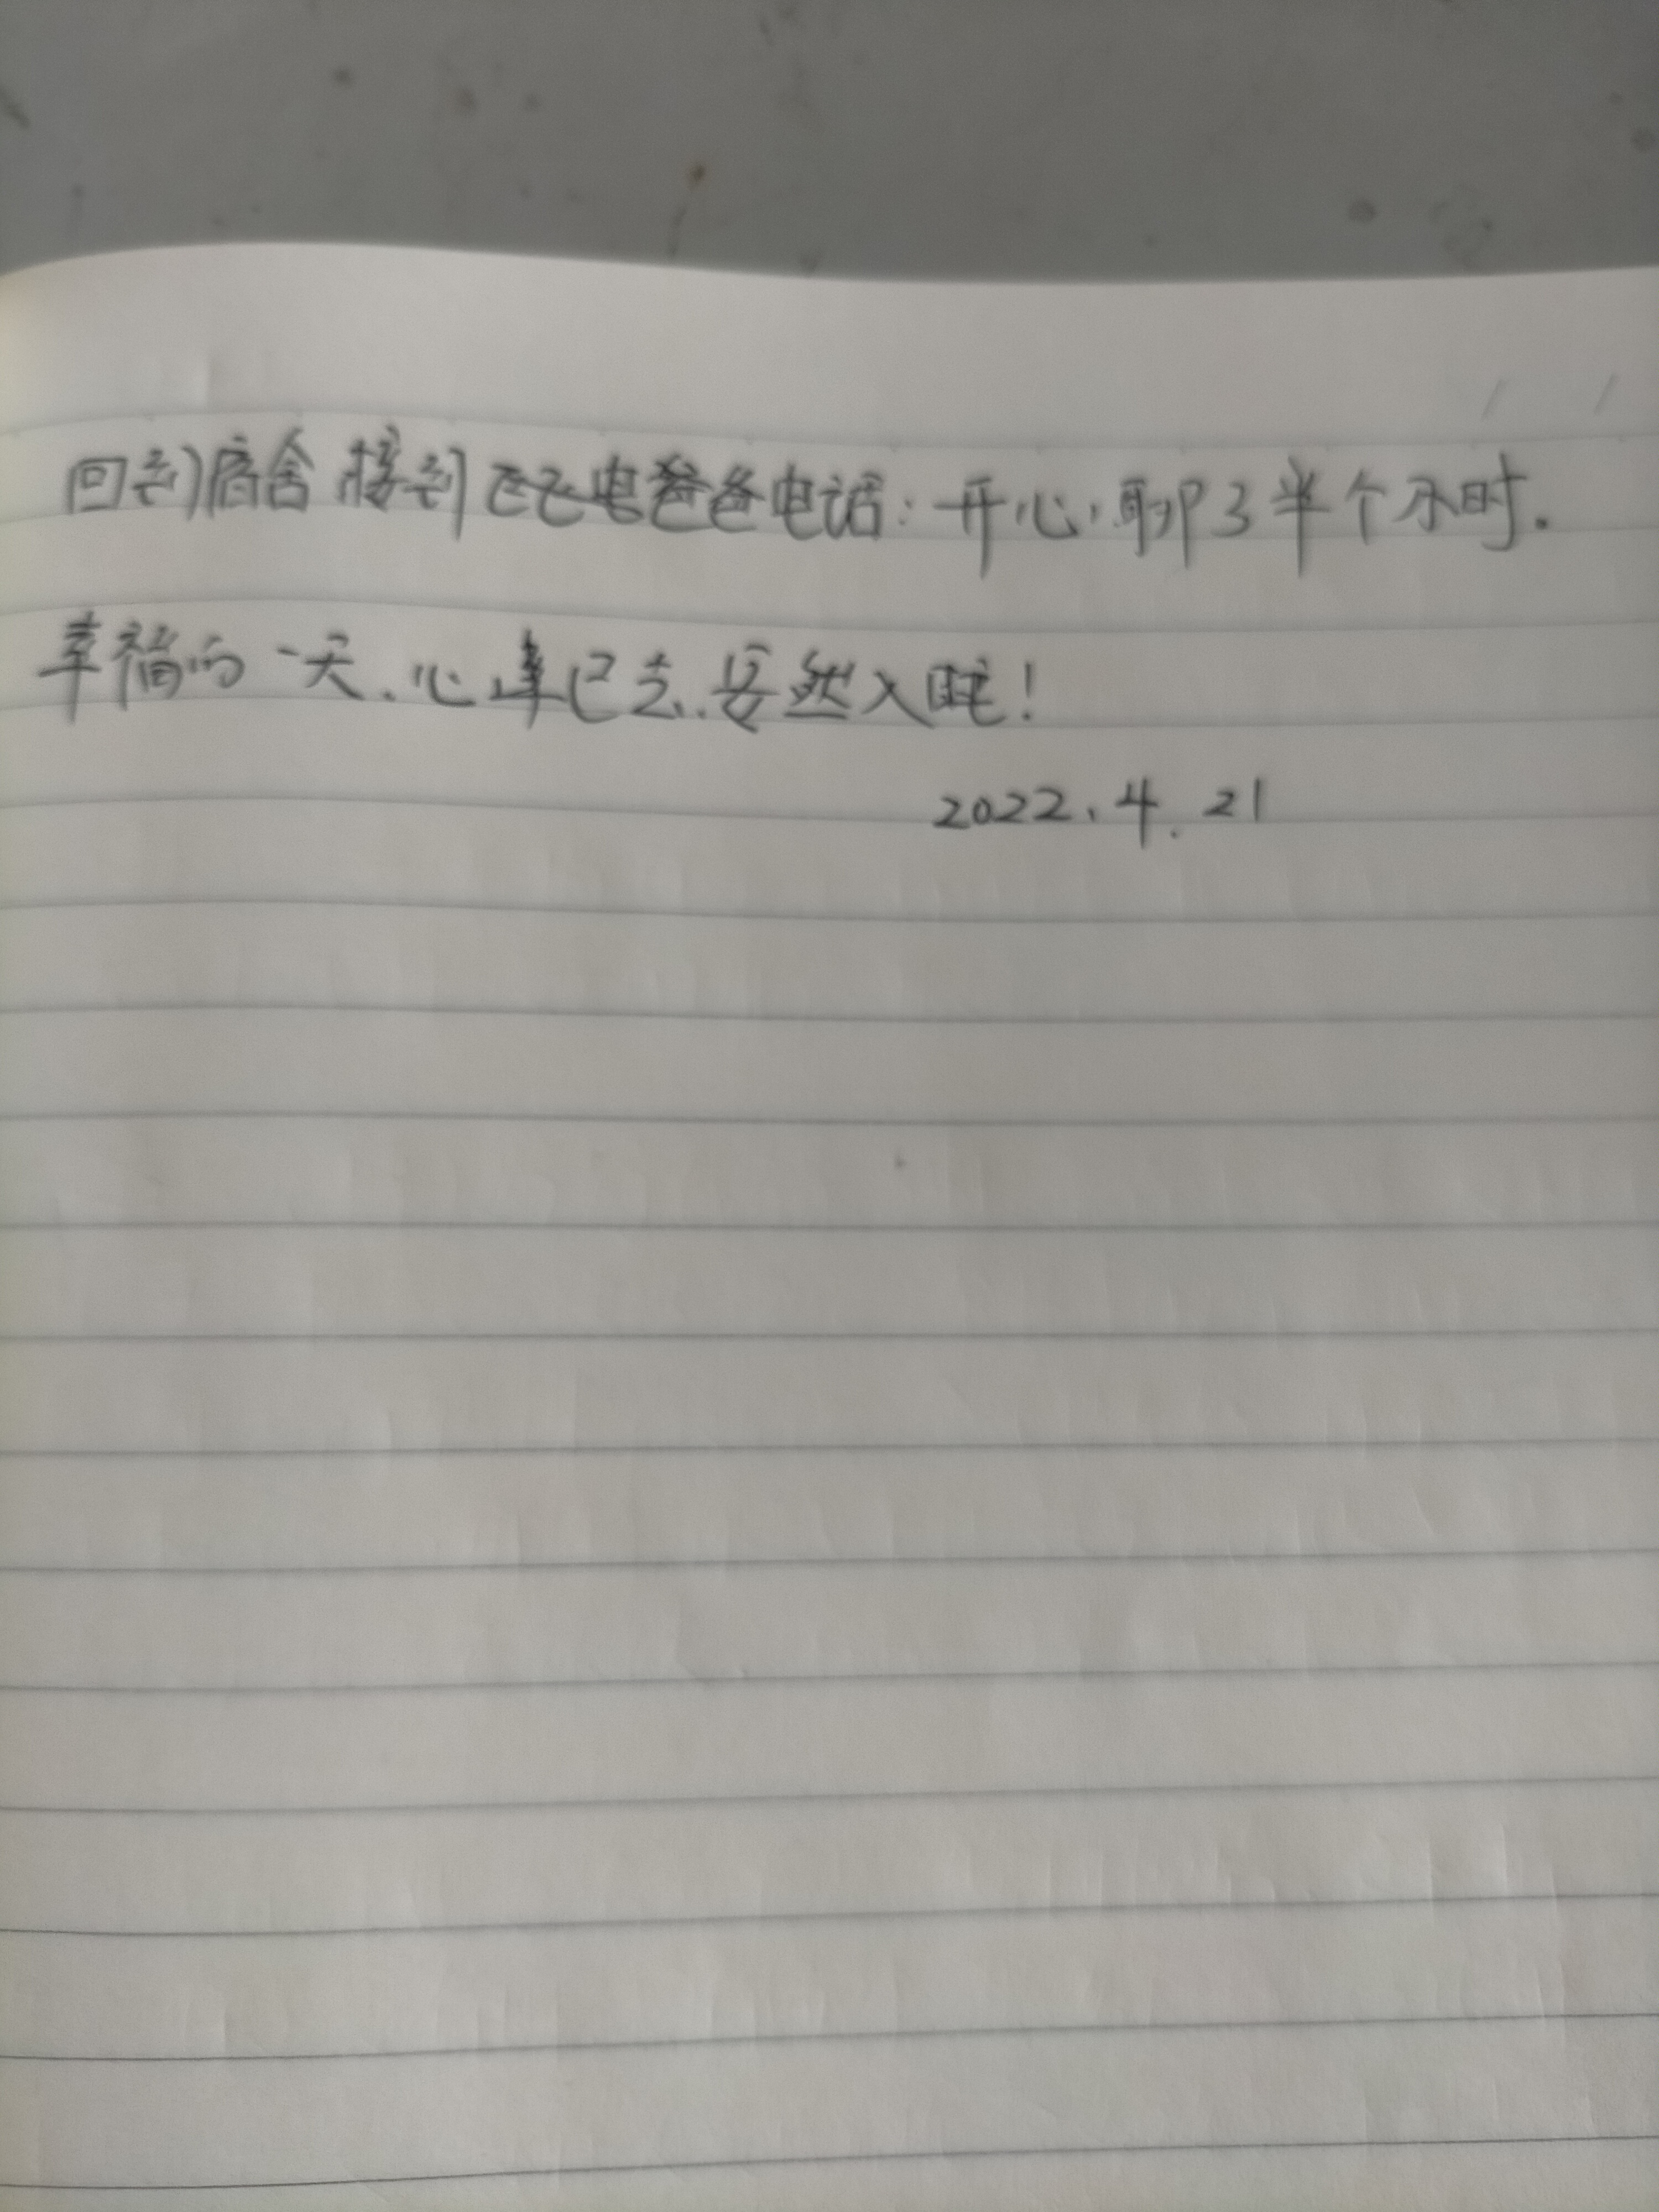 回到宿舍接到飞飞爸爸电话:开心聊了半个小时.
幸福的一天.心事已去.安然入睡!
2022.4.21